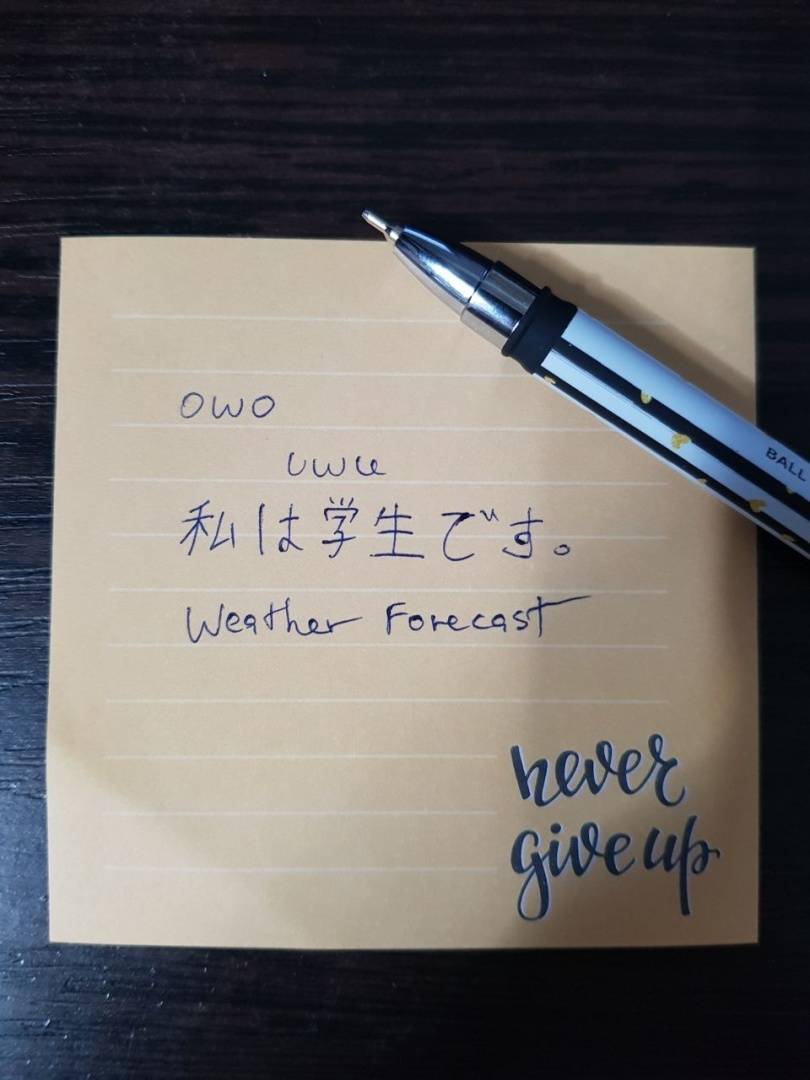 owo
uwu
私は学生です。
Weather Forecast
never
give up
BALL